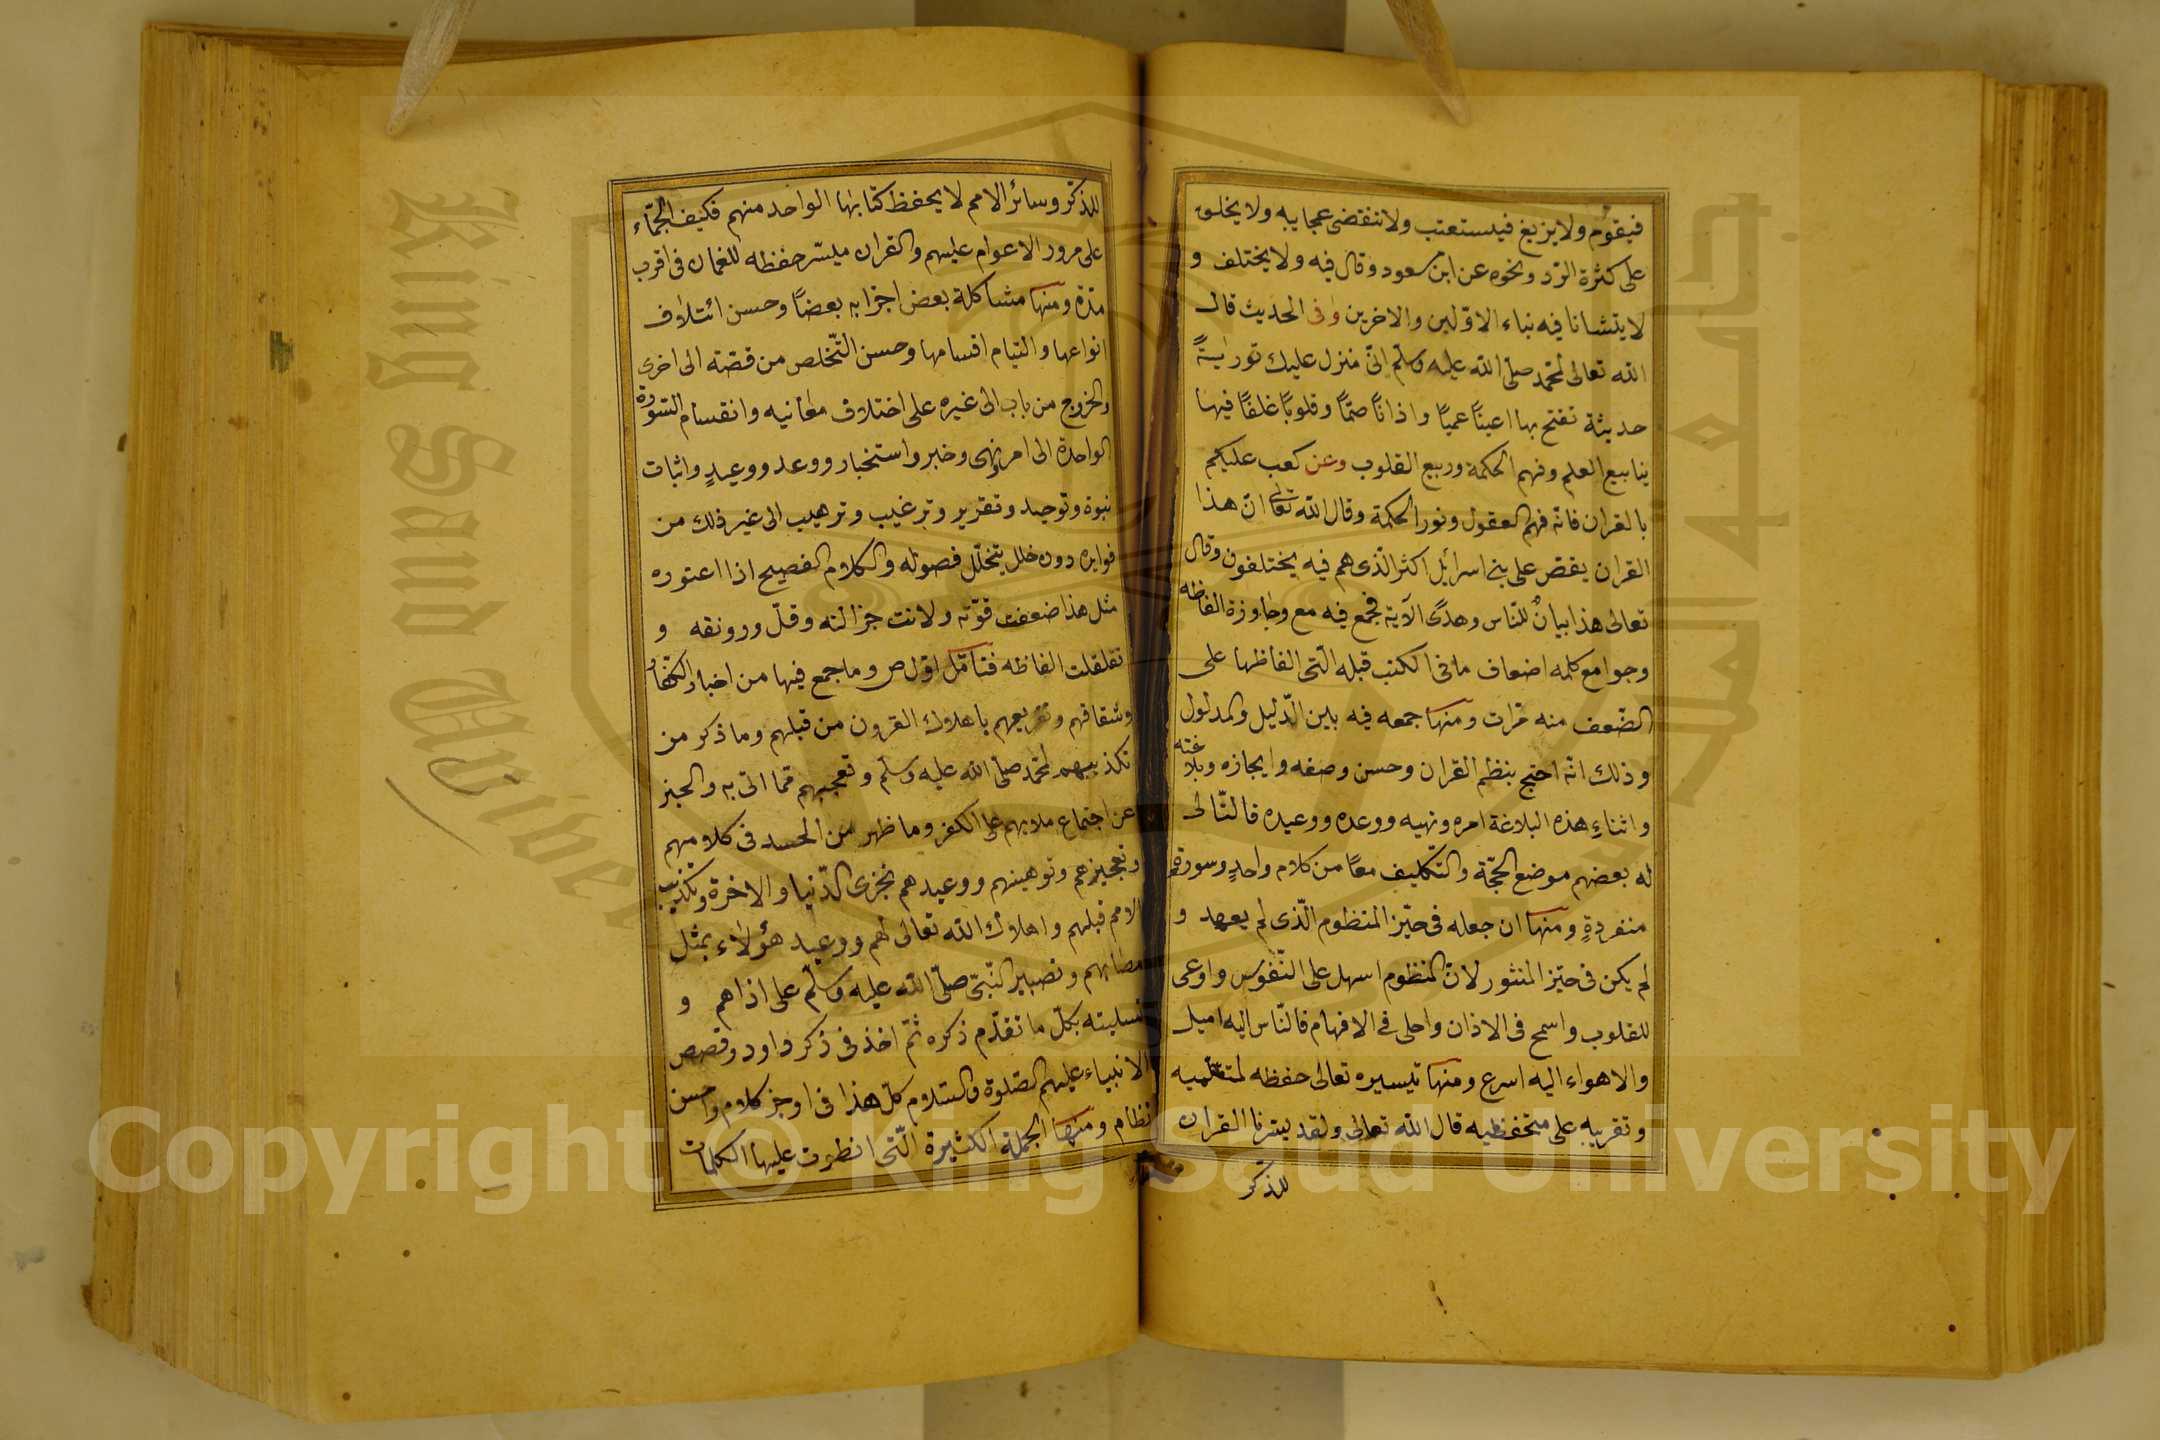 فيقوّم ولا يزيغ فيستعتب ولا تنقضى عجايبه ولا يخلق
على كثرة الرّد ونحوه عن ابن مسعود وقال فيه ولا يختلف و
لا يتشانا فيه نباء الاوّلين والاخرين وفى الحديث قال
الله تعالى لمحمد صلّى الله عليه وسلّم انّى منزل عليك توريةً
حديثة تفتح بها اعينًا عميًا واذانًا صمًّا وقلوبًا غلفًا فيها
ينابيع العلم وفهم الحكمة وربيع القلوب وعن كعب عليكم
بالقران فانّه فهم العقول ونور الحكمة وقال الله تعالى انّ هذا
القران يقصّ على بنى اسرائل اكثر الّذى هم فيه يختلفون وقال
تعالى هذا بيانٌ للنّاس وهدًى الآية فجمع فيه مع وجاوزة الفاظه
وجوامع كلمه اضعاف ما فى الكتب قبله الّتى الفاظها على
الضّعف منه مرّات ومنها جمعه فيه بين الدّليل والمدلول
وذلك انّه احتج بنظم القران وحسن وصفه وايجازه وبلاغته
واثناء هذه البلاغة امره ونهيه ووعده ووعيده فالتّالى
له بعضهم موضع الحجّة والتّكليف معًا من كلام واحدٍ وسورة
منفردةٍ ومنها ان جعله فى حيّز المنظوم الّذى لم يعهد و
لم يكن فى حيّز المنثور لانّ المنظوم اسهل على النّفوس واوعى
للقلوب واسمح فى الاذان واحلى فى الافهام فالنّاس اليه اميل
والاهواء اليه اسرع ومنها تيسيره تعالى حفظه لمتعلّميه
وتقريبه على متحفظيه قال الله تعالى ولقد يسّرنا القران
للذكر
للذكر وسائر الامم لا يحفظ كتابها الواحد منهم فكيف الجمّاء
على مرور الاعوام عليهم والقران ميسّر حفظه للغمان فى اقرب
مدّة ومنها مشاكلة بعض اجزابه بعضًا وحسن ائتلاف
انواعها والتيام اقسامها وحسن التّخلص من قصّة الى اخرى
والخروج من باب الى غيره على اختلاف معانيه وانقسام السّورة
الواحدة الى امر ونهى وخبر واستخبار ووعد ووعيدٍ واثبات
نبوة وتوحيد وتقرير وترغيب وترهيب الى غير ذلك من
فوايده دون خلل يتخلّل فصوله والكلام الفصيح اذا اعتوره
مثل هذا ضعفت قوّته ولانت جزالته وقلّ ورونقه و
تقلقلت الفاظه فتأمّل اوّل ص وما جمع فيها من اخبار الكفّار
وشقاقهم وتقريعهم باهلاك القرون من قبلهم وما ذكر من
تكذيبهم لمحمّد صلّى الله عليه وسلّم وتعجبهم ممّا اتى به والخبر
عن اجتماع ملابهم على الكفر وما ظهر من الحسد فى كلامهم
وتعجيزهم وتوهينهم ووعيدهم بخزى الدّنيا والاخرة وتكذيب
الامم قبلهم واهلاك الله تعالى لهم ووعيد هؤلاء بمثل
مصابهم وتصبير النّبىّ صلّى الله عليه وسلّم على اذاهم و
تسليته بكلّ ما تقدّم ذكره ثمّ اخذ فى ذكر داود وقصص
الانبياء عليهم الصّلوة والسّلام كلّ هذا فى اوجز كلام واحسن
نظام ومنها الجملة الكثيرة الّتى انطوت عليها الكلمات
King Saud University
Copyright © King Saud University